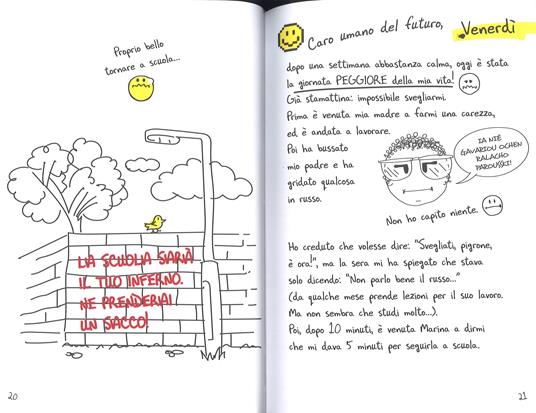 Proprio bello
tornare a scuola...
LA SCUOLA SARÀ
IL TUO INFERNO.
NE PRENDERAI
UN SACCO!
20
Caro umano del futuro,
Venerdì
dopo una settimana abbastanza calma, oggi è stata
la giornata PEGGIORE della mia vita!
Già stamattina: impossibile svegliarmi.
Prima è venuta mia madre a farmi una carezza,
ed è andata a lavorare.
Poi ha bussato
mio padre e ha
gridato qualcosa
in russo.
IA NIÈ
GAVARIOU OCHEN
RALACHO
PAROUSKI!
Non ho capito niente.
Ho creduto che volesse dire: "Svegliati, pigrone,
è ora!", ma la sera mi ha spiegato che stava
solo dicendo: "Non parlo bene il russo..."
(da qualche mese prende lezioni per il suo lavoro.
Ma non sembra che studi molto...).
Poi, dopo 10 minuti, è venuta Marina a dirmi
che mi dava 5 minuti per seguirla a scuola.
21